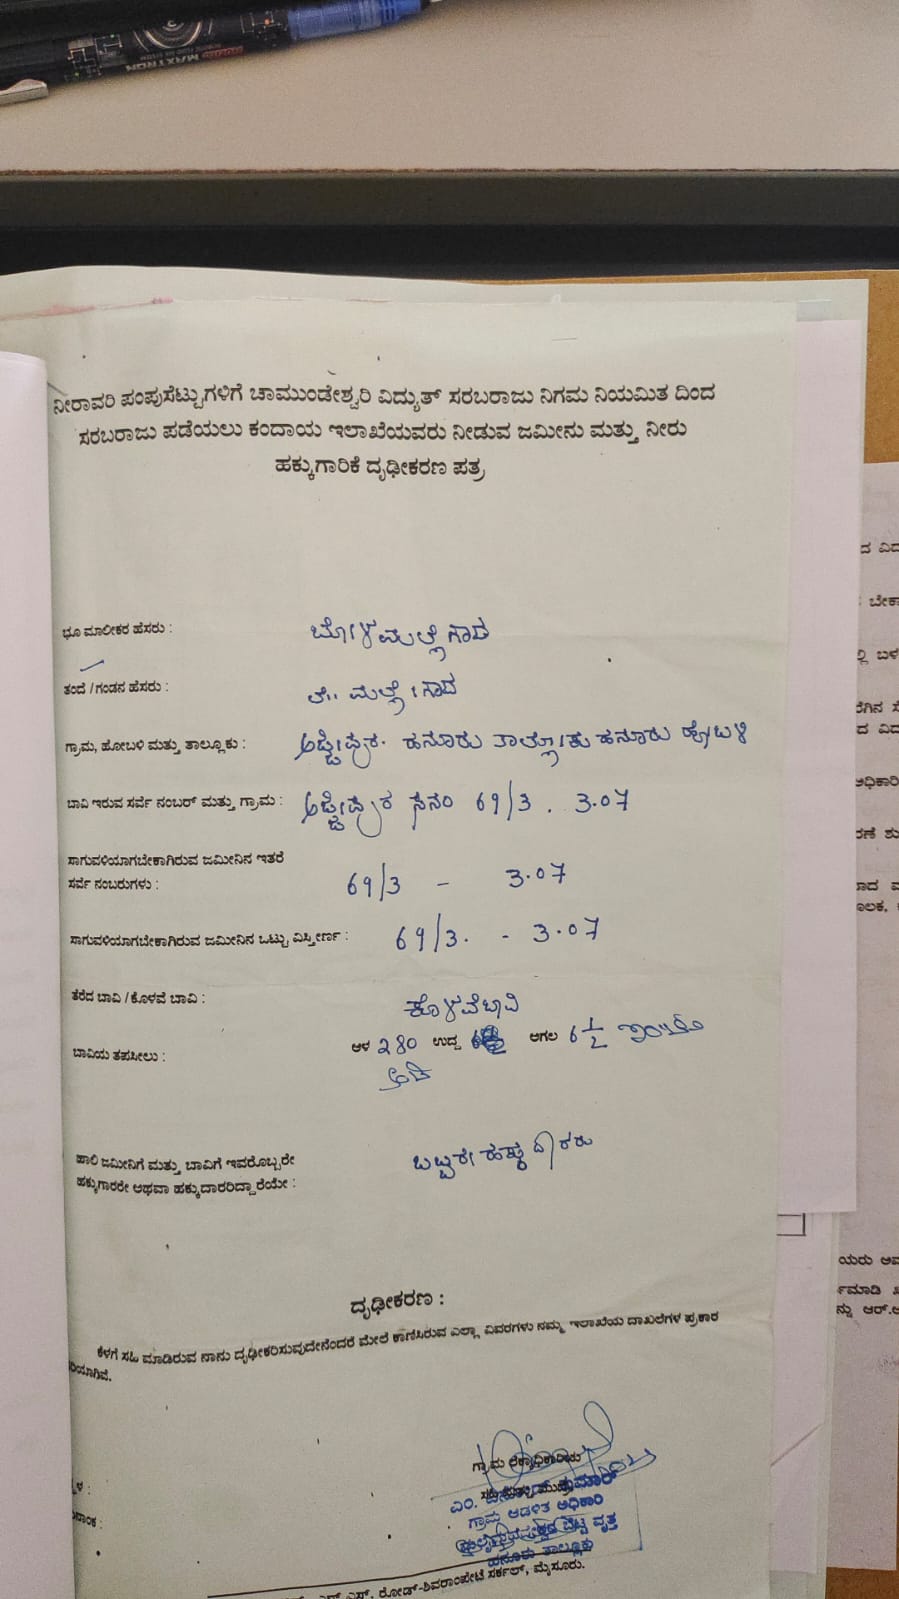 MAXTRON
ನೀರಾವರಿ ಪಂಪುಸೆಟ್ಟುಗಳಿಗೆ ಚಾಮುಂಡೇಶ್ವರಿ ವಿದ್ಯುತ್ ಸರಬರಾಜು ನಿಗಮ ನಿಯಮಿತ ದಿಂದ
ಸರಬರಾಜು ಪಡೆಯಲು ಕಂದಾಯ ಇಲಾಖೆಯವರು ನೀಡುವ ಜಮೀನು ಮತ್ತು ನೀರು
ಹಕ್ಕುಗಾರಿಕೆ ದೃಢೀಕರಣ ಪತ್ರ
ಭೂ ಮಾಲೀಕರ ಹೆಸರು :
ತಂದೆ / ಗಂಡನ ಹೆಸರು :
ಗ್ರಾಮ, ಹೋಬಳಿ ಮತ್ತು ತಾಲ್ಲೂಕು : ಅಜ್ಜೀಪುರ. ಹನೂರು ತಾಲ್ಲೂಕು ಹನೂರು ಹೋಬಳಿ
ಬಾವಿ ಇರುವ ಸರ್ವೆ ನಂಬರ್ ಮತ್ತು ಗ್ರಾಮ : ಅಜ್ಜೀಪುರ ಸನಂ 69/3 . 3.07
ಸಾಗುವಳಿಯಾಗಬೇಕಾಗಿರುವ ಜಮೀನಿನ ಇತರೆ
ಸರ್ವೆ ನಂಬರುಗಳು : 69/3 - 3.07
ಸಾಗುವಳಿಯಾಗಬೇಕಾಗಿರುವ ಜಮೀನಿನ ಒಟ್ಟು ವಿಸ್ತೀರ್ಣ : 69/3. - 3.07
ತೆರೆದ ಬಾವಿ / ಕೊಳವೆ ಬಾವಿ : ಕೊಳವೆಬಾವಿ
ಬಾವಿಯ ತಪಸೀಲು : ಆಳ 280 ಉದ್ದ ಅಗಲ 6 1/2
ಅಡಿ
ಹಾಲಿ ಜಮೀನಿಗೆ ಮತ್ತು ಬಾವಿಗೆ ಇವರೊಬ್ಬರೇ
ಹಕ್ಕುಗಾರರೇ ಅಥವಾ ಹಕ್ಕುದಾರರಿದ್ದಾರೆಯೇ : ಒಬ್ಬರೇ ಹಕ್ಕುದಾರರು
ದೃಢೀಕರಣ :
ಕೆಳಗೆ ಸಹಿ ಮಾಡಿರುವ ನಾನು ದೃಢೀಕರಿಸುವುದೇನೆಂದರೆ ಮೇಲೆ ಕಾಣಿಸಿರುವ ಎಲ್ಲಾ ವಿವರಗಳು ನಮ್ಮ ಇಲಾಖೆಯ ದಾಖಲೆಗಳ ಪ್ರಕಾರ
ರಿಯಾಗಿವೆ.
ಗ್ರಾಮ ಲೆಕ್ಕಾಧಿಕಾರಿಯ
ಗ್ರಾಮ ಆಡಳಿತ ಅಧಿಕಾರಿ
ಬೆಟ್ಟ ವೃತ್ತ
ಹನೂರು ತಾಲ್ಲೂಕು
ರೋಡ್-ಶಿವರಾಂಪೇಟೆ ಸರ್ಕಲ್, ಮೈಸೂರು.